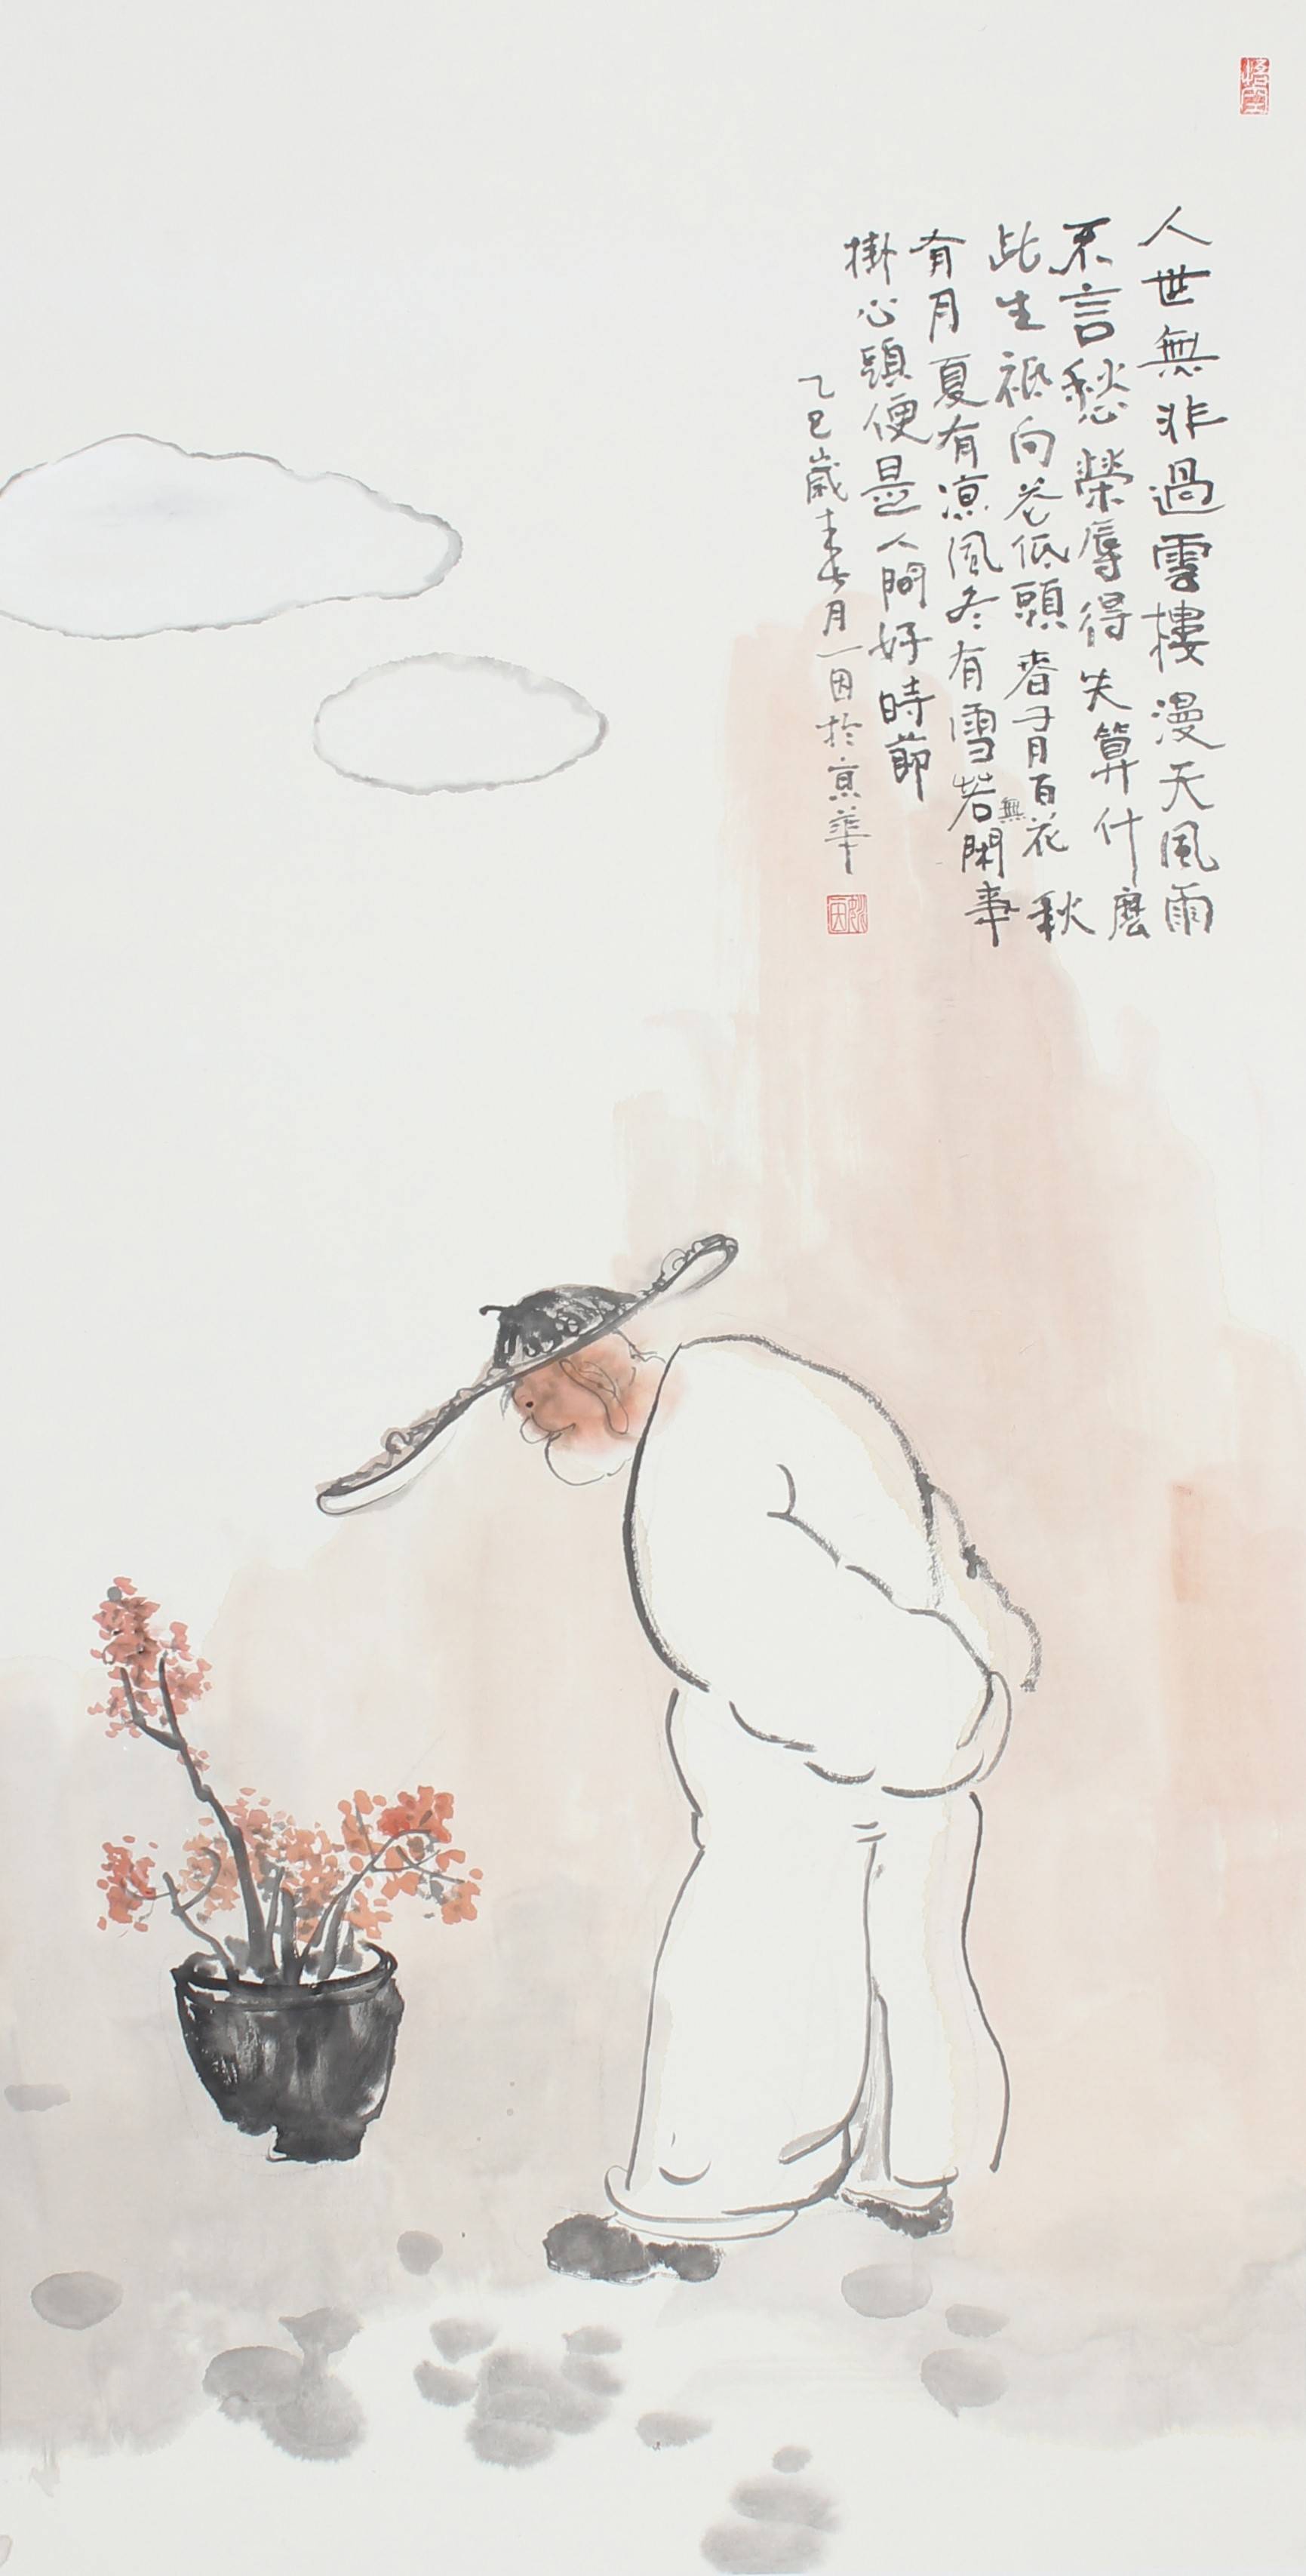 悟空
人世無非過雲樓漫天風雨
不言愁榮辱得失算什麼
此生祗向花低頭春有百花秋
有月夏有凉風冬有雪若無閑事
掛心頭便是人間好時節
乙巳歲 月一因於京華